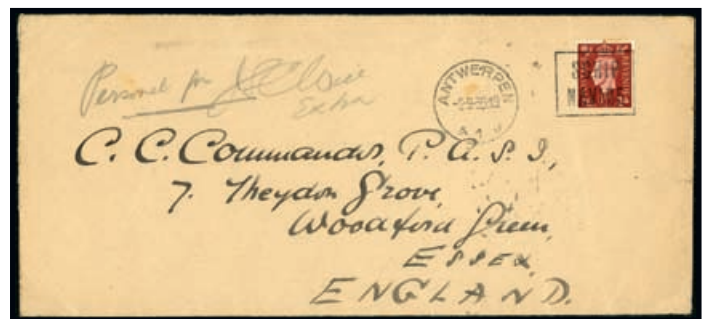 Personal for
Extra
ANTWERPEN
NAVIRE
C. C. Commander, P. A. S. I.,
7. Theydon Grove,
Woodford Green,
ESSEX,
ENGLAND.